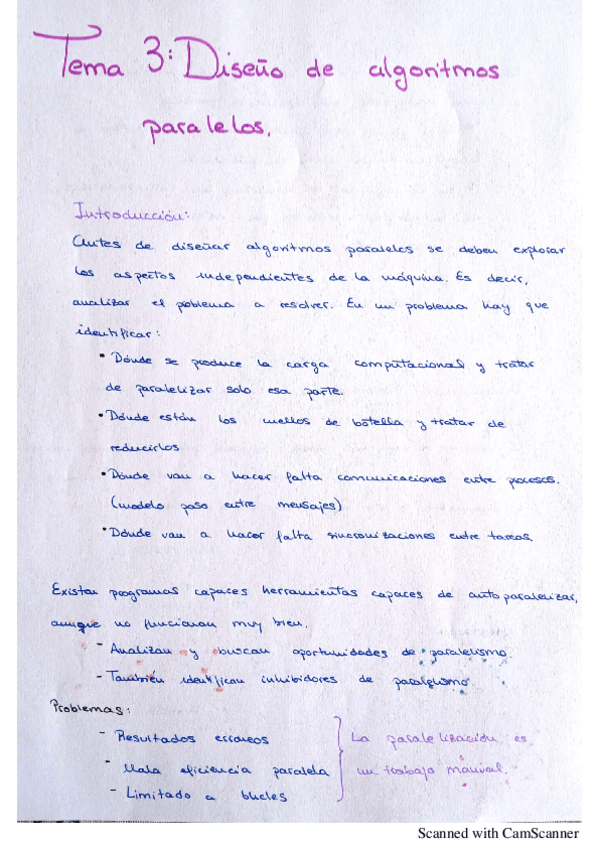 Tema 3: Diseño de algoritmos
paralelos.
Introducción:
Antes de diseñar algoritmos paralelos se deben explorar
los aspectos independientes de la máquina. Es decir,
analizar el problema a resolver. En un problema hay que
identificar:
• Dónde se produce la carga computacional y tratar
de paralelizar solo esa parte.
• Dónde están los cuellos de botella y tratar de
reducirlos
• Dónde van a hacer falta comunicaciones entre procesos.
(modelo paso entre mensajes)
• Dónde van a hacer falta sincronizaciones entre tareas
Existen programas capaces herramientas capaces de autoparalelizar,
aunque no funcionan muy bien.
- Analizan y buscan oportunidades de paralelismo.
- También identifican inhibidores de paralelismo.
Problemas:
- Resultados erroneos
- Mala eficiencia paralela
- Limitado a bucles
La paralelización es
un trabajo manual.
Scanned with CamScanner